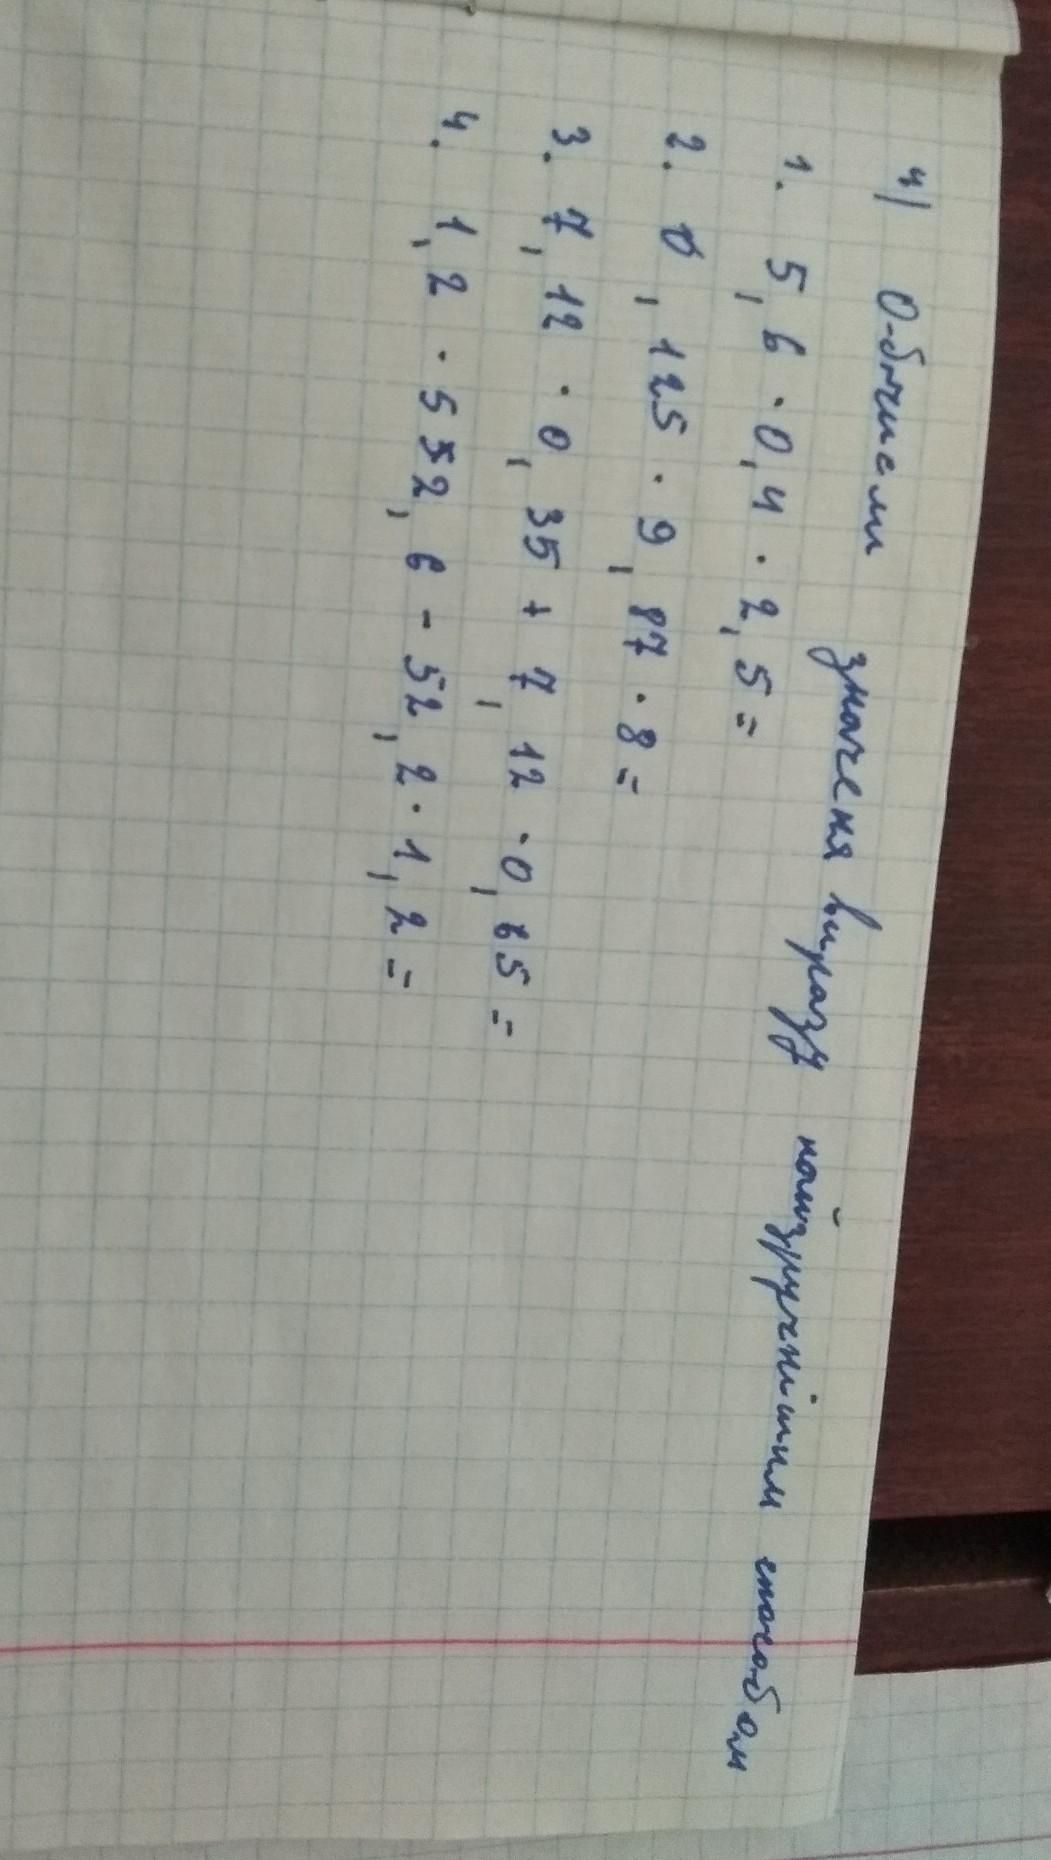 4) Обчисли значеня виразу найзручнішим способом
1. 5,6 · 0,4 · 2,5 =
2. 0,125 · 9,87 · 8 =
3. 7,12 · 0,35 + 7,12 · 0,65 =
4. 1,2 · 552,6 - 52,2 · 1,2 =